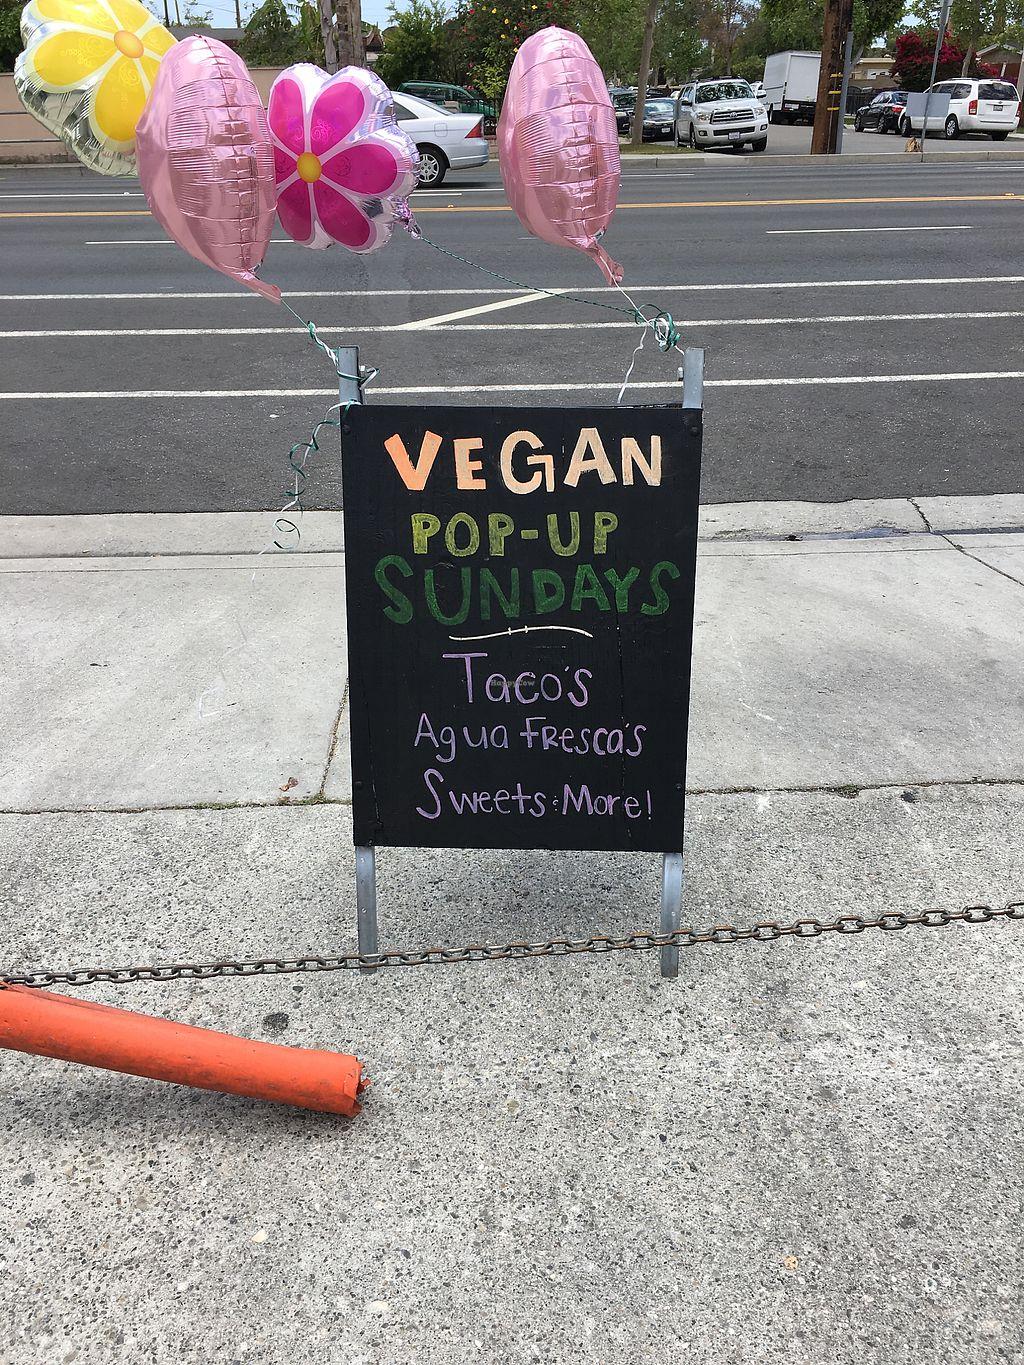 VEGAN
POP-UP
SUNDAYS
Taco's
HappyCow
Agua Fresca's
Sweets & More!